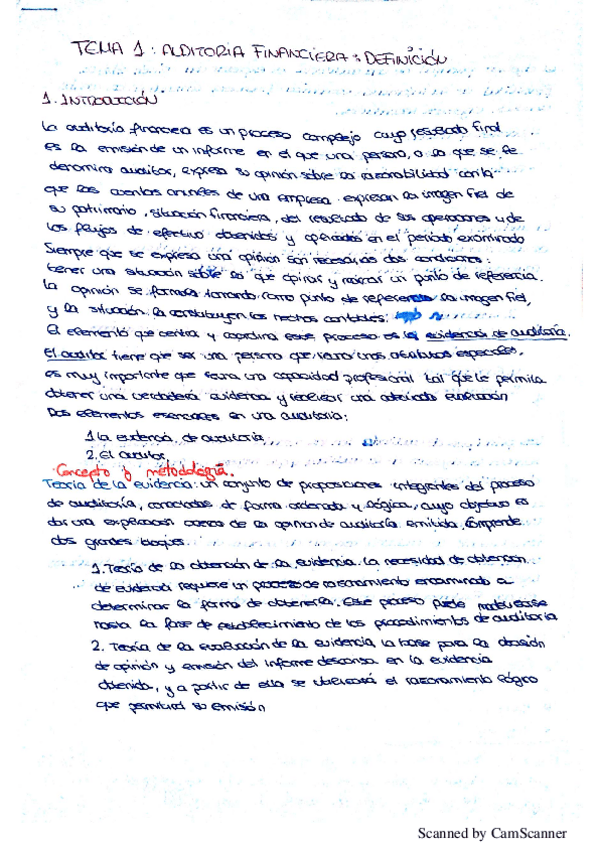 TEMA 1: AUDITORIA FINANCIERA: DEFINICIÓN
1. INTRODUCCIÓN
La auditoría financiera es un proceso complejo cuyo resultado final
es la emisión de un informe en el que una persona, a la que se le
denomina auditor, expresa su opinión sobre la razonabilidad con la
que las cuentas anuales de una empresa expresan la imagen fiel de
su patrimonio, situación financiera, del resultado de sus operaciones y de
los flujos de efectivo obtenidos y aplicados en el periodo examinado
Siempre que se expresa una opinión son necesarias dos condiciones:
tener una situación sobre la que opinar y marcar un punto de referencia.
La opinión se formará tomando como punto de referencia la imagen fiel,
y la situación la constituyen los hechos contables.
El elemento que centra y coordina este proceso es la evidencia de auditoría.
El auditor tiene que ser una persona que reúna unos atributos especiales,
es muy importante que tenga una capacidad profesional tal que le permita
obtener una verdadera evidencia y realizar una adecuada evaluación
Dos elementos esenciales en una auditoria:
1. La evidencia de auditoría
2. El auditor
Concepto y metodología.
Teoría de la evidencia: un conjunto de proposiciones integrantes del proceso
de auditoría, conectadas de forma ordenada y lógica, cuyo objetivo es
dar una explicación acerca de la opinión de auditoría emitida. Comprende
dos grandes bloques.
1. Teoría de la obtención de la evidencia. La necesidad de obtención
de evidencia requiere un proceso de razonamiento encaminado a
determinar la forma de obtenerla. Este proceso puede
hasta la fase de establecimiento de los procedimientos de auditoria
2. Teoría de la evaluación de la evidencia, la base para la decisión
de opinión y emisión del informe descansa en la evidencia
obtenida, y a partir de ella se utilizará el razonamiento lógico
que permitirá su emisión
Scanned by CamScanner